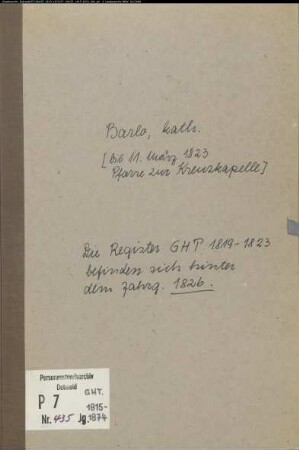 Barlo, kath.
[bis 11. März 1823
Pfarre zur Kreuzkapelle]
Die Register GHT 1819-1823
befinden sich hinter
dem Jahrg. 1826.
Personenstandsarchiv
Detmold
P 7 GHT.
1815-
Nr. 435 Jg. 1874